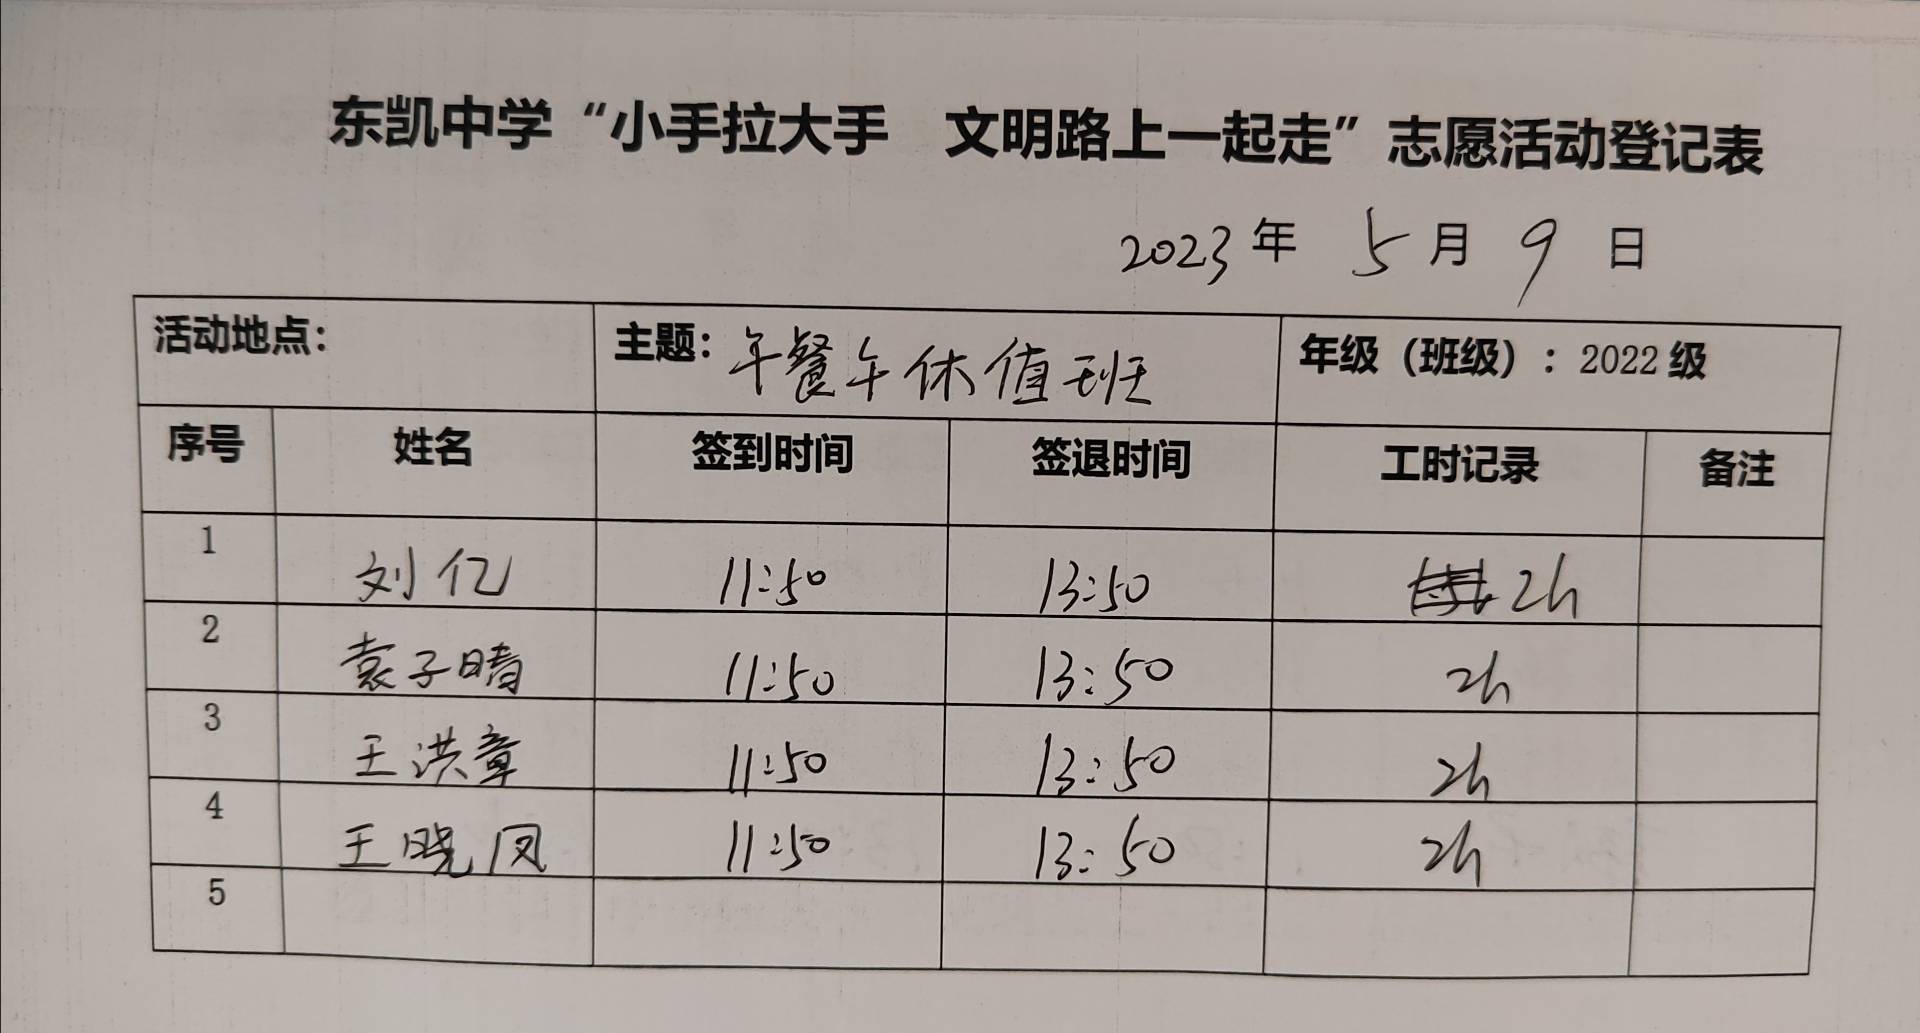 东凯中学“小手拉大手 文明路上一起走”志愿活动登记表
2023年 5月 9日
活动地点： 主题：午餐午休值班 年级（班级）：2022级
序号 姓名 签到时间 签退时间 工时记录 备注
1 刘亿 11:50 13:50 2h
2 袁子晴 11:50 13:50 2h
3 王洪章 11:50 13:50 2h
4 王晓凤 11:50 13:50 2h
5